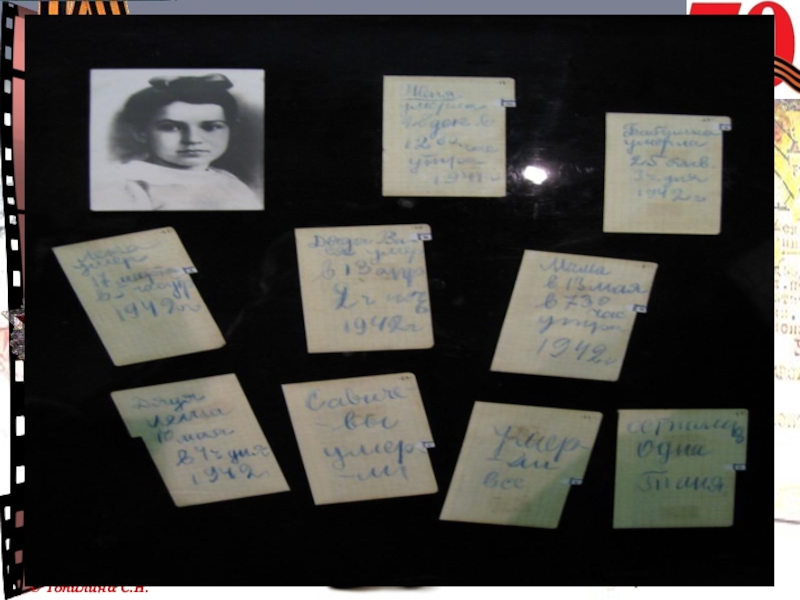 70
Женя
умерла
28 дек в
12 00 час
утра
1941 г
Бабушка
умерла
25 янв.
3 ч дня
1942 г
Лека
умер
17 марта
1942 г
Дядя Ва-
ся умер
в 13 апр
2 ч ноч
1942 г
Мама
в 13 мая
в 7 30
час
утра
1942 г
Дядя
Леша
10 мая
в 4 ч дня
1942 г
Савиче-
-вы
умер-
-ли
Умер-
ли
все
Осталась
одна
Таня
Топилина С.Н.